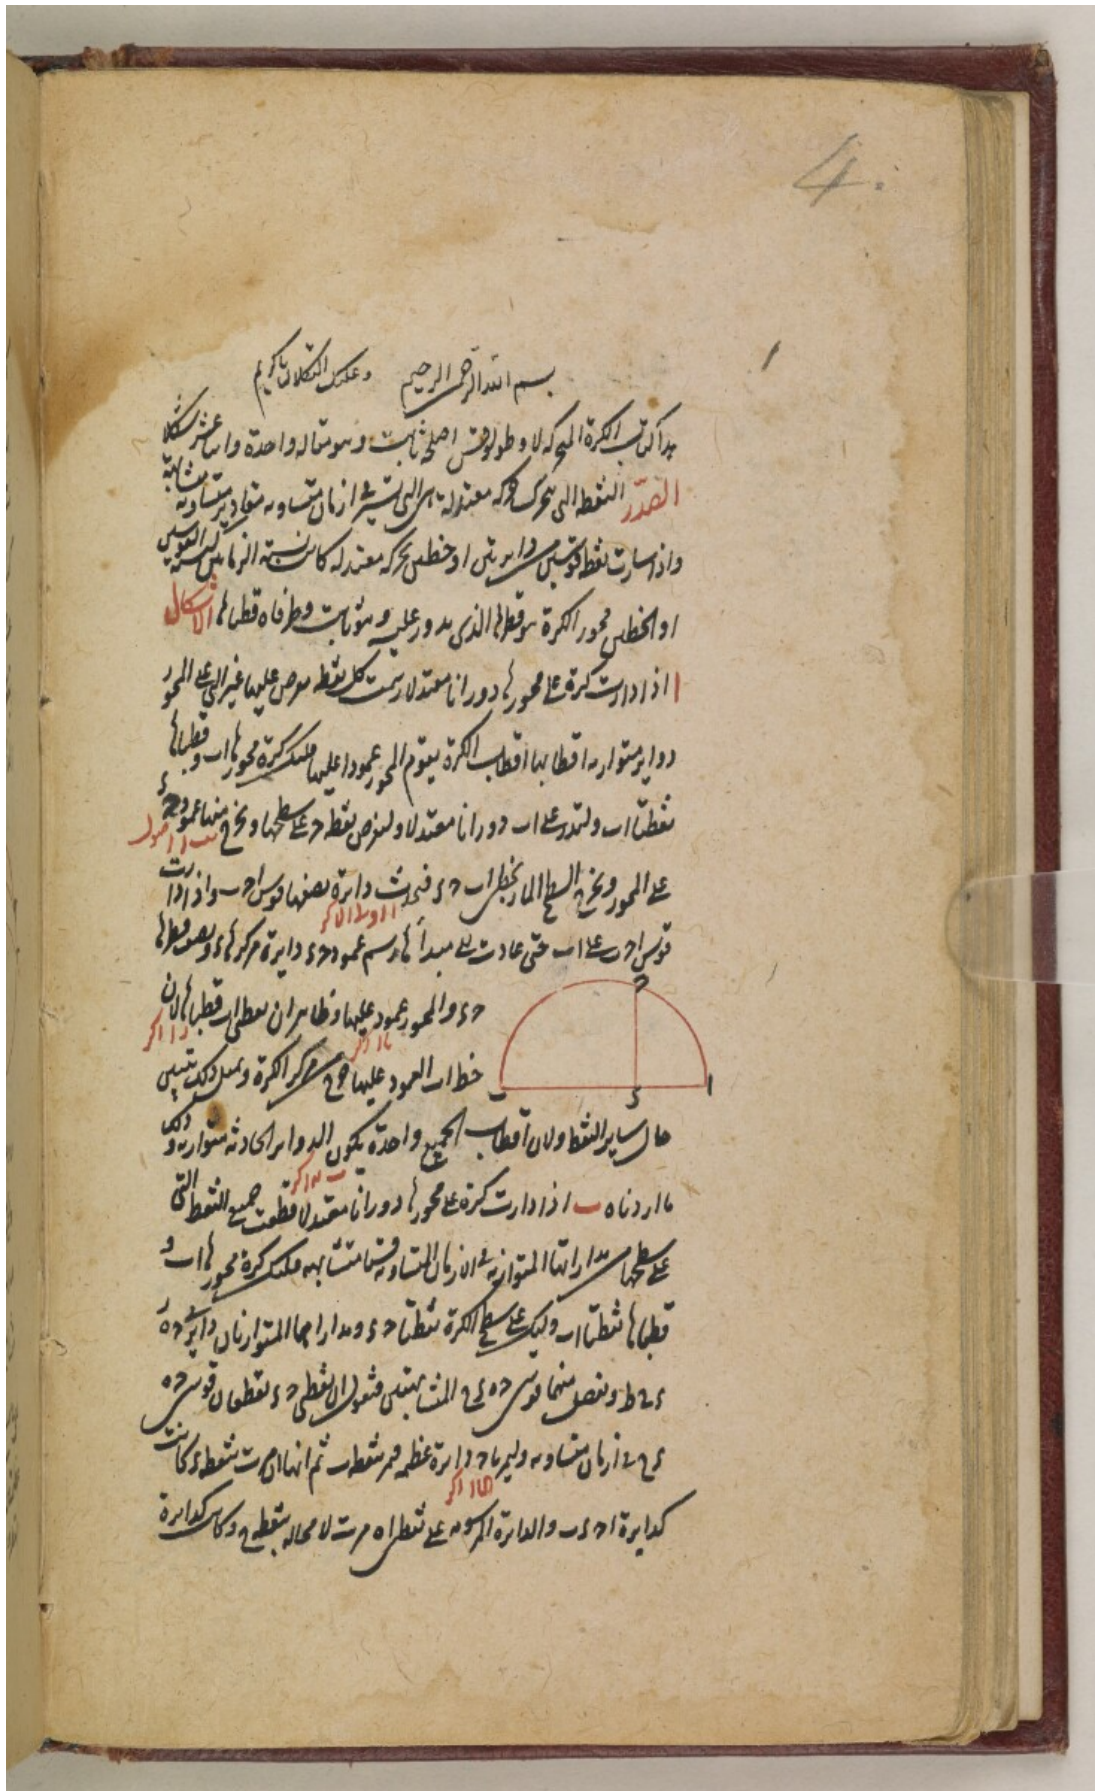 4.
بسم الله الرحمن الرحيم وعليك التكلان يا كريم
هذا كتاب الكرة المتحركة لاوطولوقس اصلحه ثابت وهو مقالة واحدة واثنا عشر شكلا
الصدر النقطة التى تتحرك حركة معتدلة هى التى تسير فى ازمان متساوية مقادير متساوية متشابهة
واذا سارت نقطة قوسين من دايرتين او خطين بحركة معتدلة كانت نسبة الزمانين كنسبة القوسين
او الخطين محور الكرة هو قطرها الذى يدور عليه وهو ثابت وطرفاه قطباها الاشكال
ا اذا دارت كرة على محورها دورانا معتدلا رسمت كل نقطة تفرض عليها غير التى على المحور
دواير متوازية اقطابها اقطاب الكرة يقوم المحور عمودا عليها فليكن كرة محورها اب وقطباها
نقطتا اب ولتدر على اب دورانا معتدلا ولنفرض نقطة ح على سطحها ونخرج منها عمود حء
على المحور ونخرج السطح المار بخطى اب حء فتحدث دايرة نصفها قوس احب واذا دارت
قوس احب على اب حتى عادت الى مبدأها رسم عمود حء دايرة مركزها ء ونصف قطرها
حء والمحور عمود عليها وظاهر ان نقطتى اب قطباها لان
خط اب العمود عليها خرج من مركز الكرة وبمثل ذلك نتبين
حال ساير النقط ولان اقطاب الجميع واحدة يكون الدواير الحادثة متوازية وذلك
ما اردناه ب اذا دارت كرة على محورها دورانا معتدلا قطعت جميع النقط التى
على سطحها من مداراتها المتوازية فى الازمان المتساوية قسيا متشابهة فليكن كرة محورها اب و
قطباها نقطتا اب وليكن على سطح الكرة نقطتا حء ومداراهما المتوازيان دايرتى حه
ءحط ونفصل منهما قوسى حه ءح المتشابهتين فنقول ان نقطتى حء تقطعان قوسى حه
ءح فى ازمان متساوية وليمر باح دايرة عظيمة فتمر بنقطة ب ثم انها ان مرت بنقطة ء كانت
كدايرة احءب والدايرة المرسومة على نقطتى اه مرت لا محالة بنقطة ح وكانت كدايرة